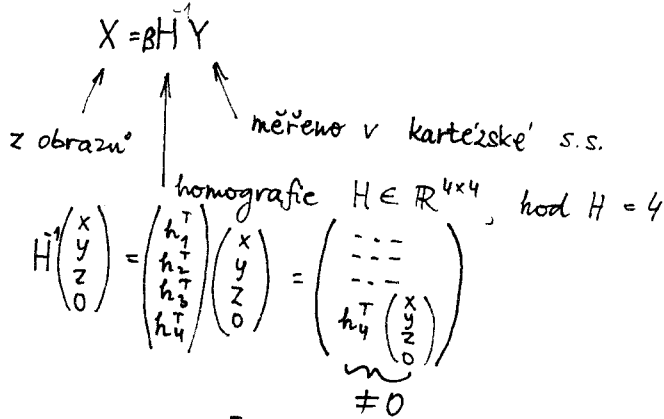 X = βH⁻¹Y
z obrazů
měřeno v kartézské s.s.
homografie H ∈ ℝ⁴ˣ⁴, hod H = 4
H⁻¹ (x y z 0) = (h₁ᵀ h₂ᵀ h₃ᵀ h₄ᵀ) (x y z 0) = (--- --- --- h₄ᵀ (x y z 0))
≠ 0